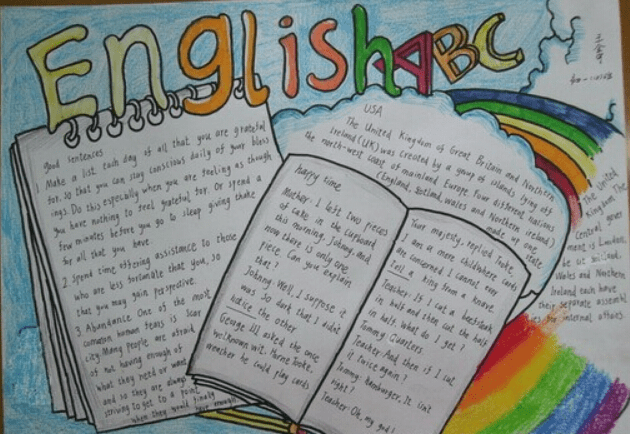 English ABC
good sentences
1 Make a list each day of all that you are grateful
for. So that you can stay conscious daily of your bless
ings. Do this especially when you are feeling as though
you have nothing to feel grateful for. Or spend a
few minutes before you go to sleep giving thake
for all that you have.
2. Spend time offering assistance to those
who are less fortunate that you, so
that you may gain perspective.
3. Abundance One of the most
common human fears is scar
city. Many people are afraid
of not having enough of
what they need or want
and so they are always
striving to get to a point
when they would finally
have enough
happy time
Mother: I left two pieces
of cake in the cupboard
this morning, Johnny, and
now there is only one
piece. Can you explain
that?
Johnny: Well, I suppose it
was so dark that I didn't
notice the other
George III, asked the once
well known wit, Horne Tooke,
weather he could play cards
Your majesty, replied Tooke,
I am a mere child where cards
are concerned I cannot even
tell a king from a knave
Teacher: If I cut a beefsteak
in half and then cut the half
in half. What do I get?
Tommy: Quarters.
Teacher: And then if I cut
it twice again?
Tommy: Hamburger. It isn't
right!
Teacher: Oh, my god!
USA
The United Kingdom of Great Britain and Northern
Ireland (UK) was created by a group of islands lying off
the north-west coast of mainland Europe. Four different nations
(England, Scotland, wales and Northern ireland)
made up one
state
The United
Kingdom The
Central gover
ment is London,
Wales and Northern
Ireland each have
their separate assembl
ies for internal affairs.